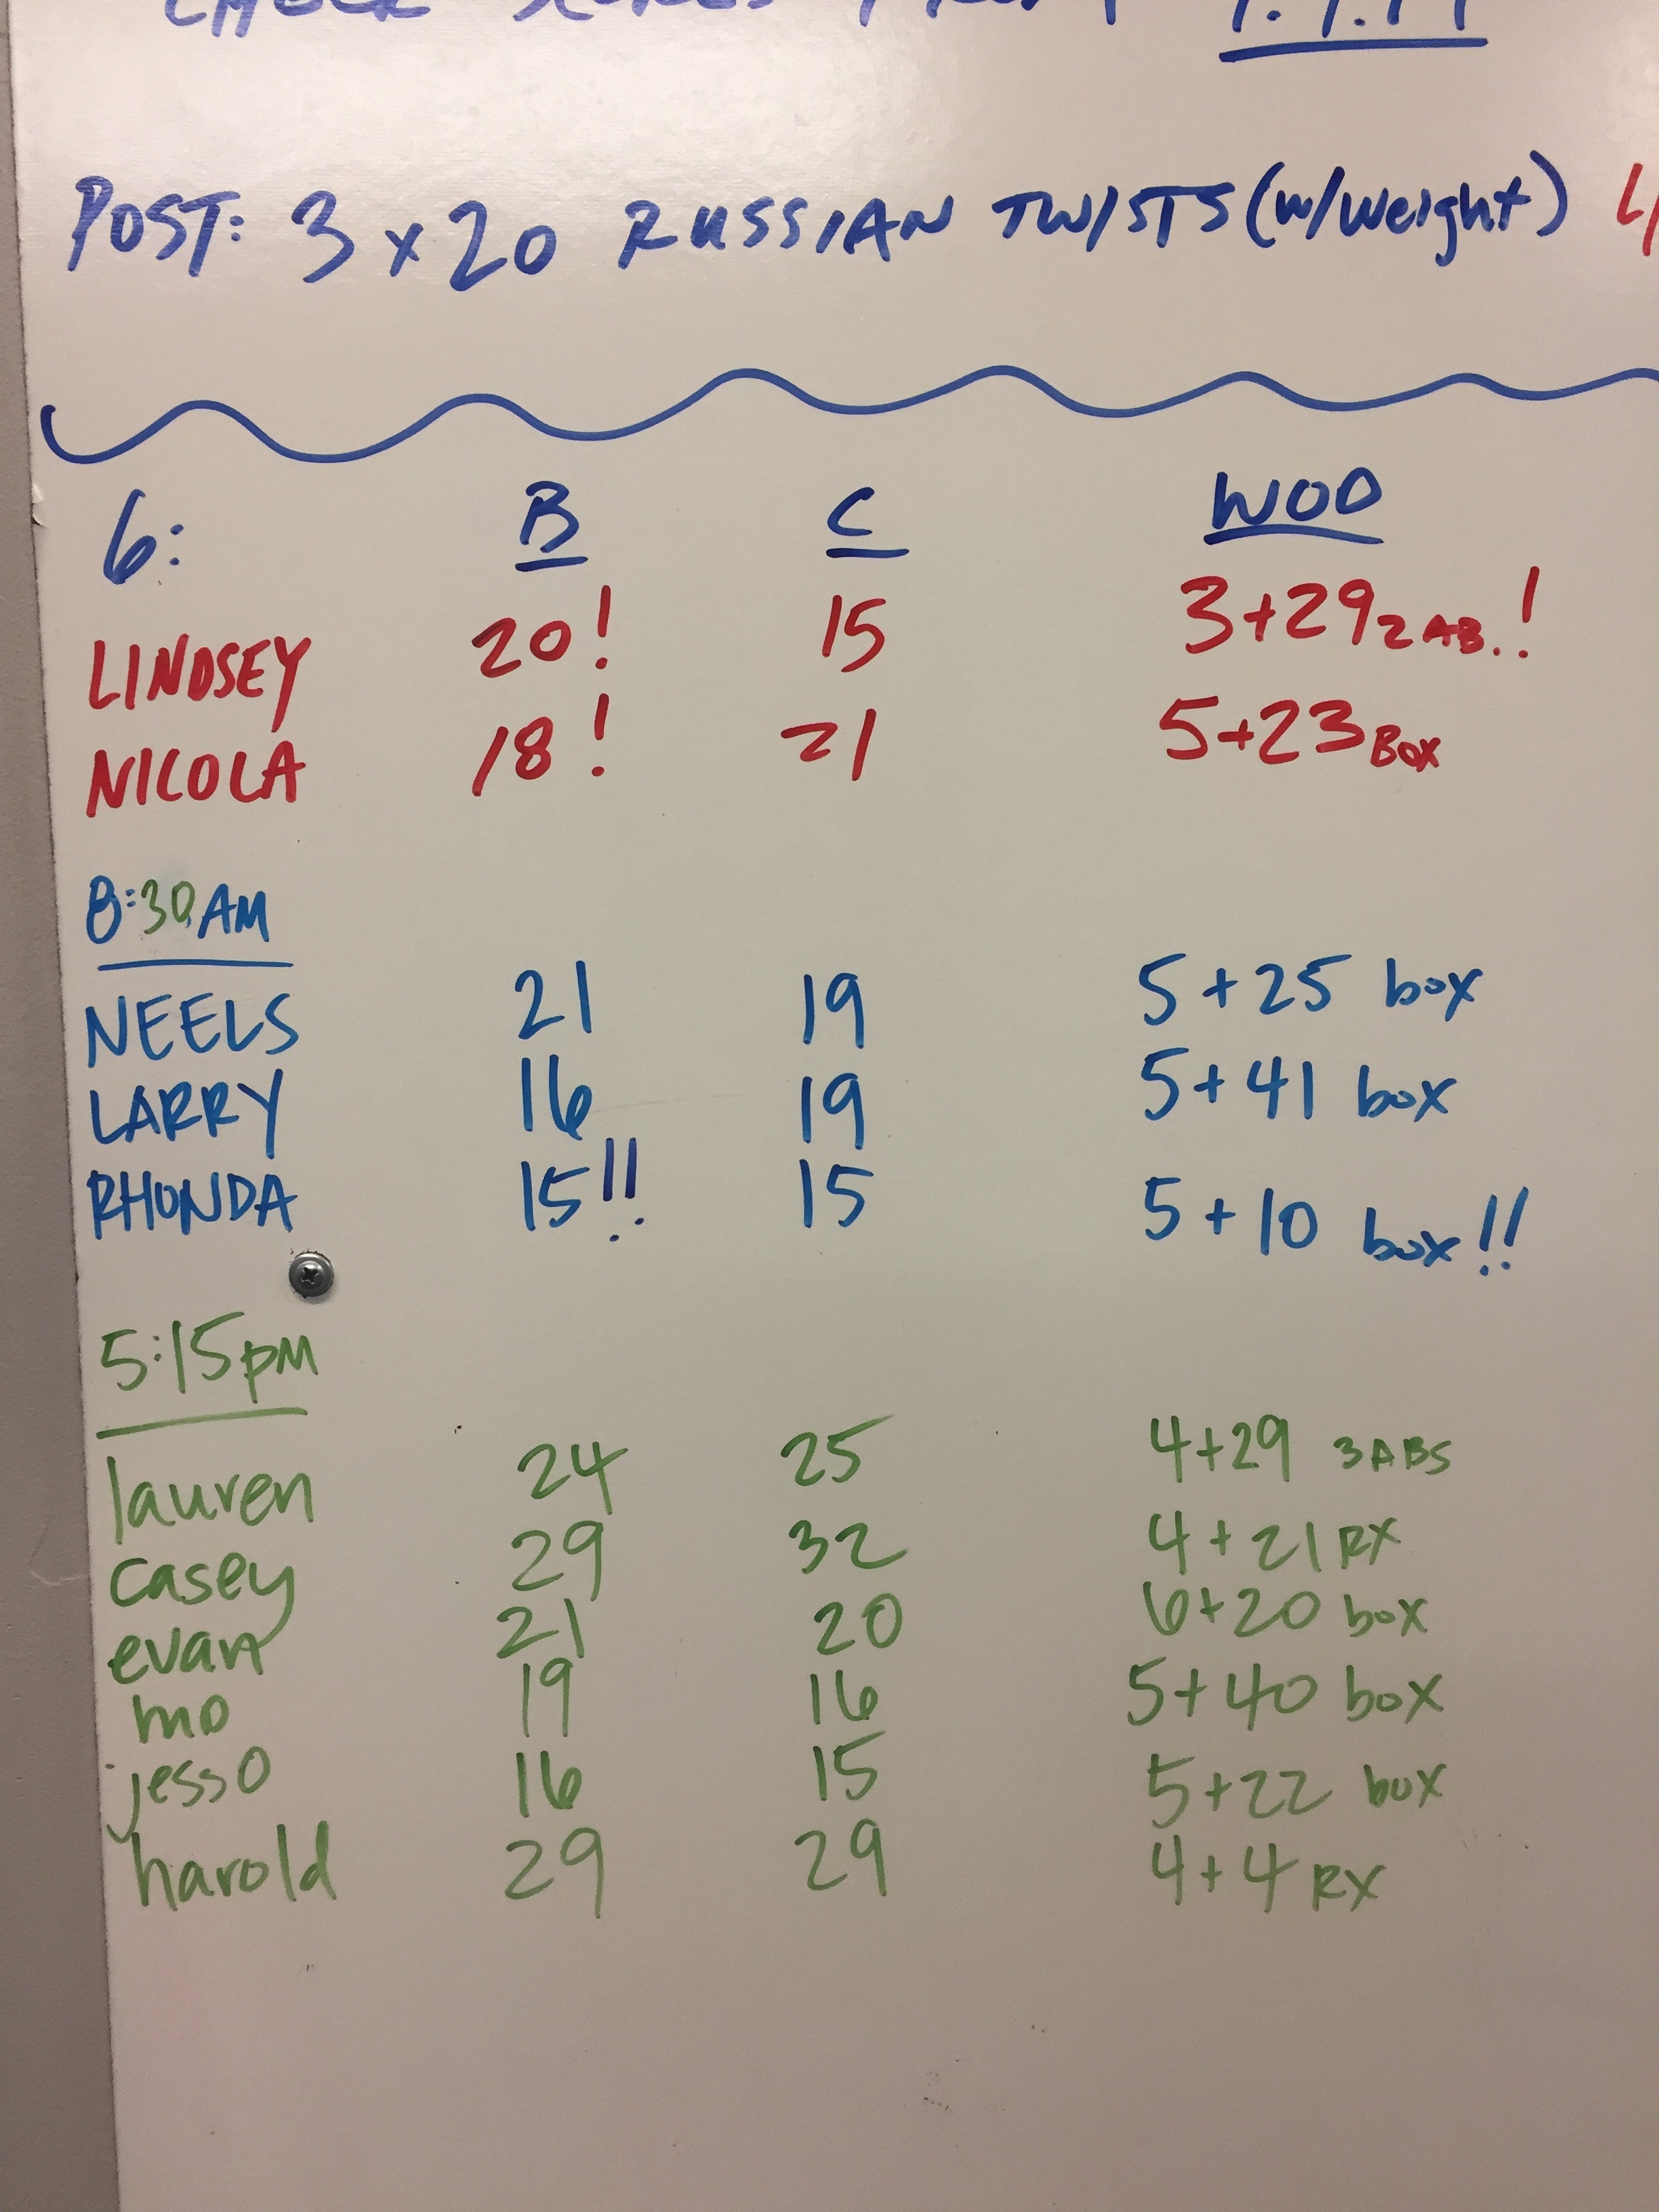 POST: 3 x 20 RUSSIAN TWISTS (w/weight)
6: B C WOD
LINDSEY 20! 15 3+29 2 AB.!
NICOLA 18! 21 5+23 BOX
8:30 AM
NEELS 21 19 5+25 box
LARRY 16 19 5+41 box
RHONDA 15!! 15 5+10 box!!
5:15pm
lauren 24 25 4+29 3ABS
casey 29 32 4+21 RX
evan 21 20 6+20 box
mo 19 16 5+40 box
jesso 16 15 5+22 box
harold 29 29 4+4 RX